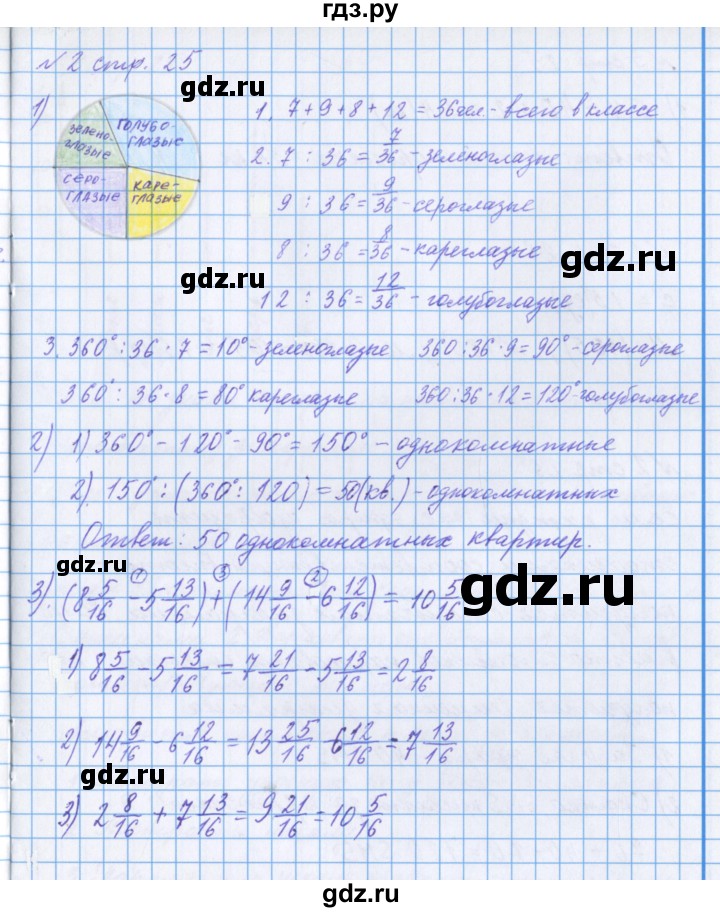 гдз.ру
№2 стр. 25
gdz.ru
1)
ЗЕЛЕНО-
ГЛАЗЫЕ
ГОЛУБО-
ГЛАЗЫЕ
СЕРО-
ГЛАЗЫЕ
КАРЕ-
ГЛАЗЫЕ
1. 7+9+8+12=36чел.-всего в классе
2. 7:36=7/36-зеленоглазые
9:36=9/36-сероглазые
8:36=8/36-кареглазые
12:36=12/36-голубоглазые
gdz.ru
gdz.ru
gdz.ru
3. 360°:36·7=10°-зеленоглазые 360:36·9=90°-сероглазые
360°:36·8=80° кареглазые 360:36·12=120°-голубоглазые
2) 1) 360°-120°-90°=150°-однокомнатные
2) 150:(360:120)=50(кв.)-однокомнатных
Ответ: 50 однокомнатных квартир.
gdz.ru
3). (8 5/16 - 5 13/16) + (14 9/16 - 6 12/16) = 10 5/16
1 3 2
gdz.ru
1) 8 5/16 - 5 13/16 = 7 21/16 - 5 13/16 = 2 8/16
2) 14 9/16 - 6 12/16 = 13 25/16 - 6 12/16 = 7 13/16
gdz.ru
gdz.ru
3) 2 8/16 + 7 13/16 = 9 21/16 = 10 5/16
gdz.ru